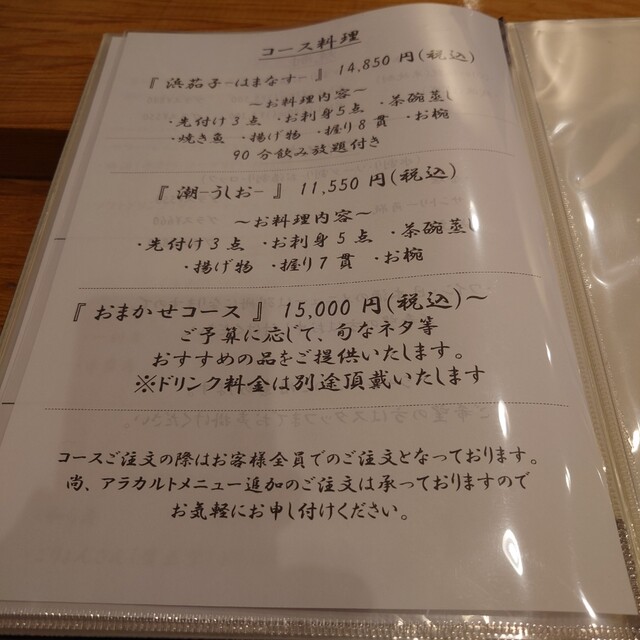 コース料理
『 浜茄子-はまなす- 』 14,850 円(税込)
～お料理内容～
・先付け3点 ・お刺身5点 ・茶碗蒸し
・焼き魚 ・揚げ物 ・握り8貫 ・お椀
90分飲み放題付き
『 潮-うしお- 』 11,550 円(税込)
～お料理内容～
・先付け3点 ・お刺身5点 ・茶碗蒸し
・揚げ物 ・握り7貫 ・お椀
『 おまかせコース 』 15,000 円(税込)～
ご予算に応じて、旬なネタ等
おすすめの品をご提供いたします。
※ドリンク料金は別途頂戴いたします
コースご注文の際はお客様全員でのご注文となっております。
尚、アラカルトメニュー追加のご注文は承っておりますので
お気軽にお申し付けください。